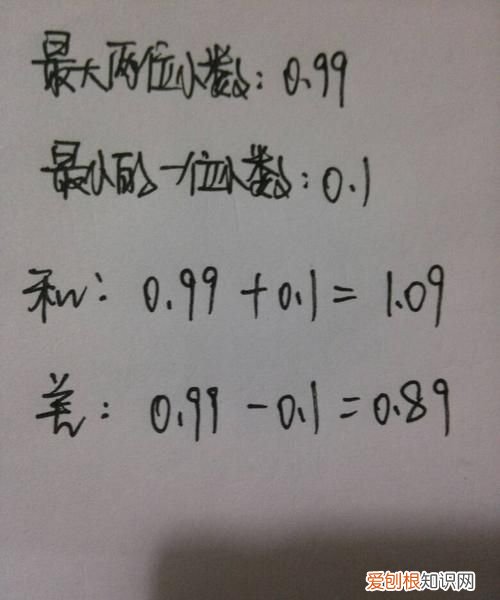 最大两位小数：0.99
最小的一位小数：0.1
和：0.99+0.1=1.09
差：0.99-0.1=0.89
爱刨根知识网